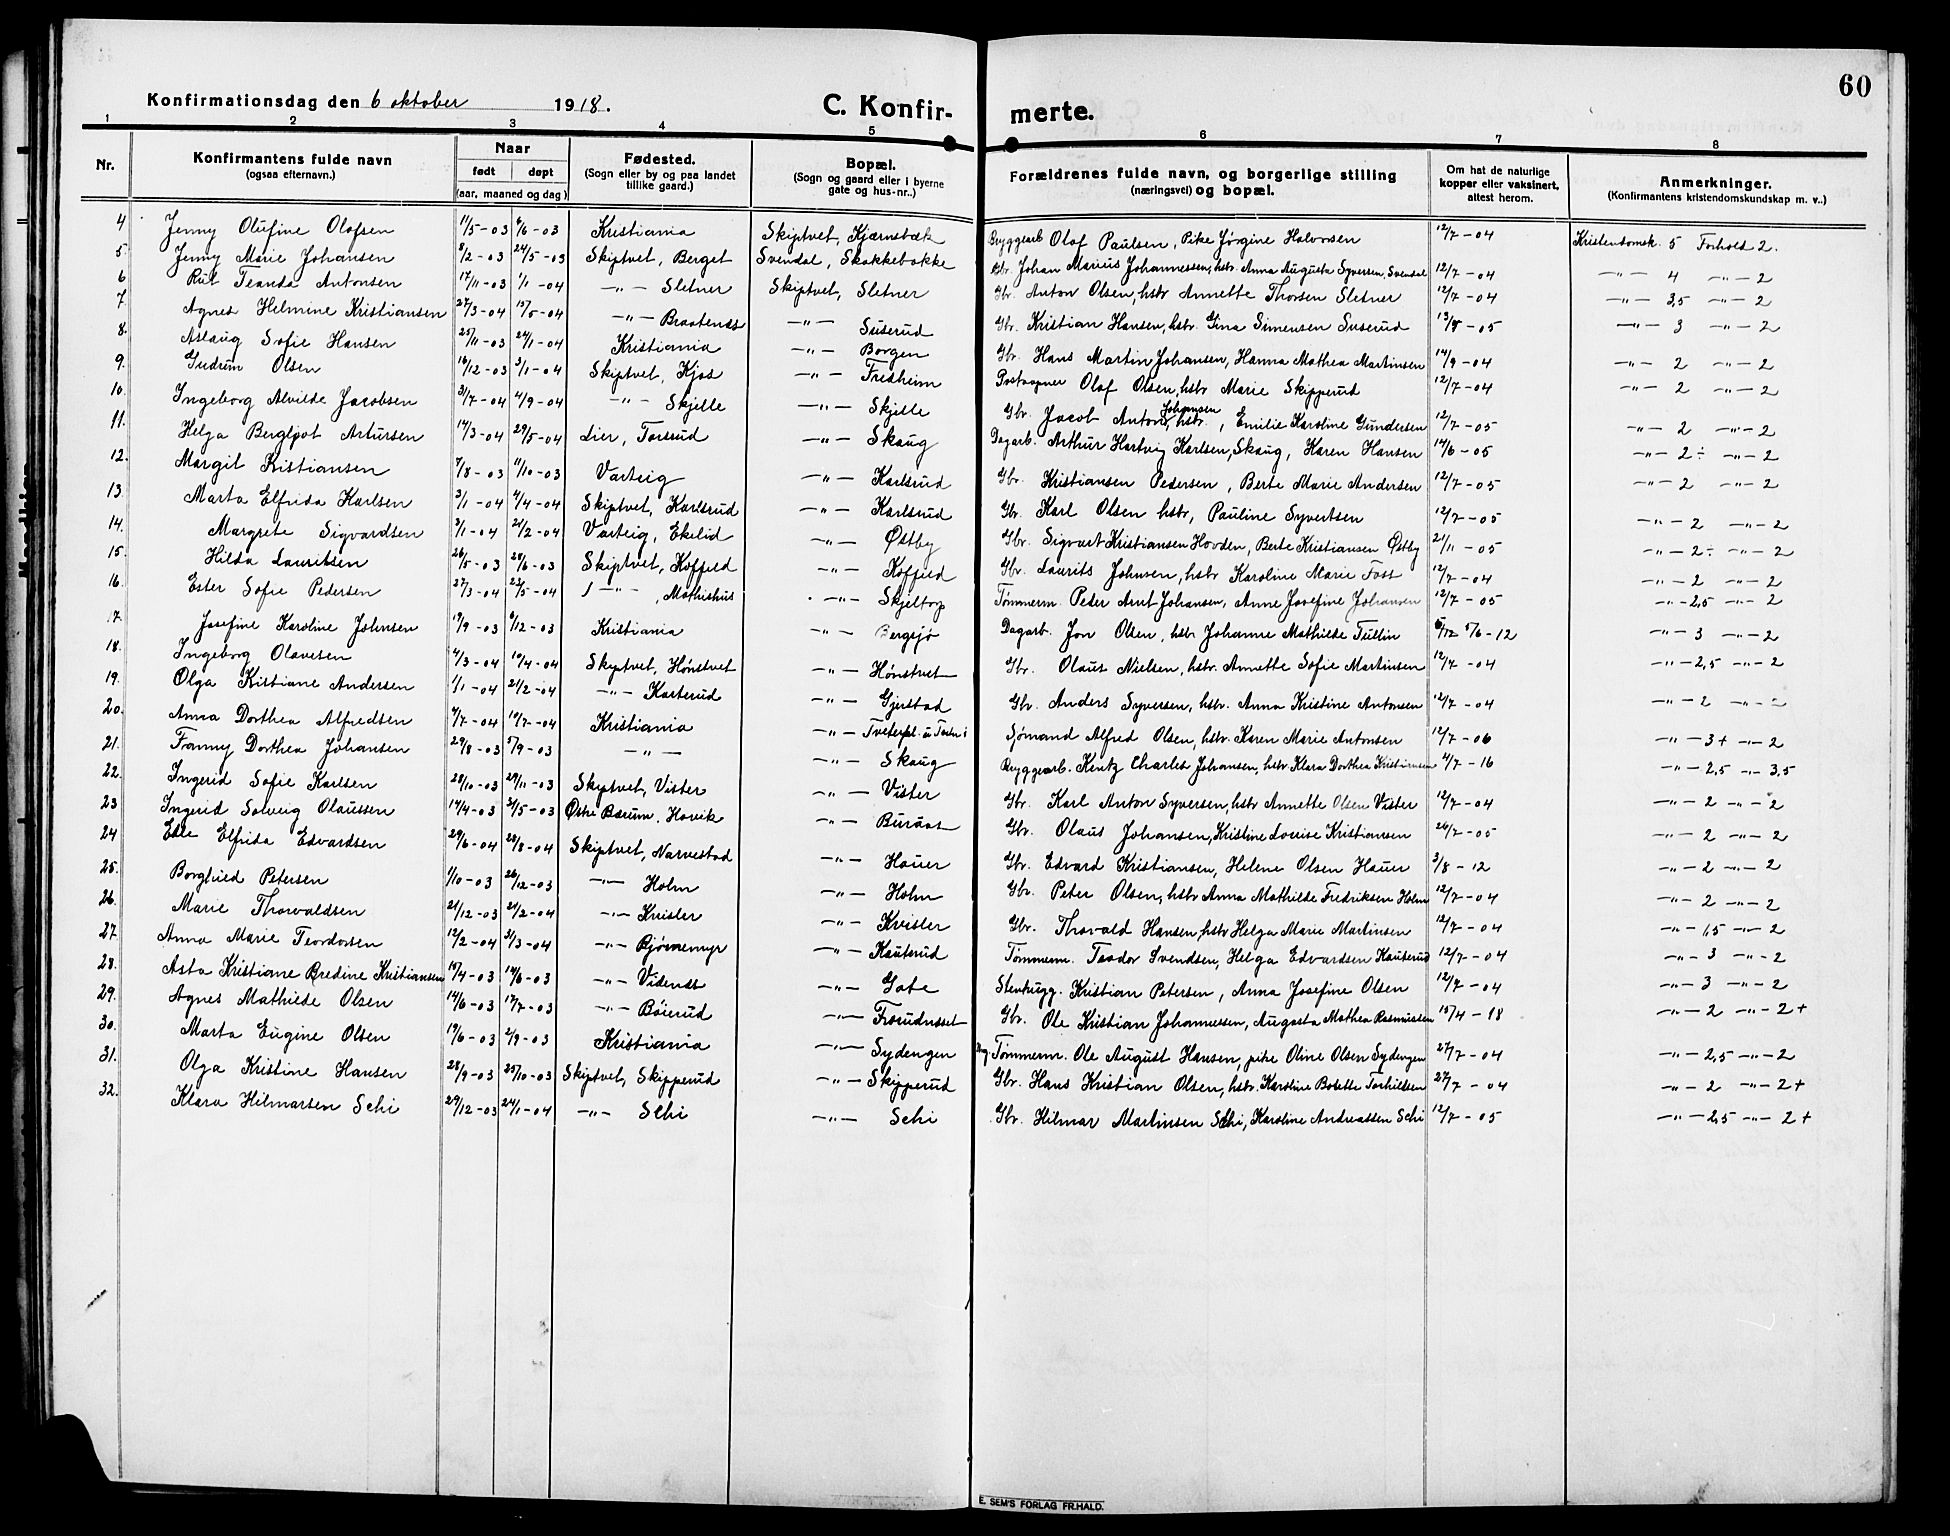 60
Konfirmationsdag den 6 oktober 1918.
C. Konfirmerte.
1 2 3 4 5 6 7 8
Nr.
Konfirmantens fulde navn
(ogsaa efternavn.)
Naar
født døpt
(aar, maaned og dag)
Fødested.
(Sogn eller by og paa landet
tillike gaard.)
Bopæl.
(Sogn og gaard eller i byerne
gate og hus-nr..)
Forældrenes fulde navn, og borgerlige stilling
(næringsvei) og bopæl.
Om hat de naturlige
kopper eller vaksinert,
attest herom.
Anmerkninger.
(Konfirmantens kristendomskundskap m. v..)
4 Jenny Olufine Olafsen 11/5-03 6/6-03 Kristiania Skiptvet, Kjærnebæk Bryggearb Olaf Paulsen, Pike Jørgine Halvorsen 12/7-04 Kristendomsk. 5 Forhold 2.
5. Jenny Marie Johansen 8/2-03 24/5-03 Skiptvet, Berget Svendal, Skakkebakke Gbr. Johan Marius Johannessen, hstr. Anna Augusta Syversen, Svendal 12/7-04 -"- 4 -"- 2
6 Rut Teanda Antonsen 17/11-03 1/1-04 -"- Sletner Skiptvet, Sletner Gbr. Anton Olsen, hstr Annette Thorsen Sletner 12/7-04 -"- 3,5 -"- 2
7 Agnes Helmine Kristiansen 27/3-04 15/5-04 -"- Braatenes -"- Suserud Gbr. Kristian Hansen, hstr. Gina Simensen Suserud 13/8-05 -"- 3 -"- 2
8. Aslaug Sofie Hansen 25/11-03 24/1-04 Kristiania -"- Borgen Gbr. Hans Martin Johansen, Hanna Mathea Martinsen 14/9-04 -"- 2 -"- 2
9. Gudrun Olsen 16/12-03 3/1-04 Skiptvet, Kjos -"- Fredheim Postaapner Olaf Olsen, hstr Marie Skipperud 12/7-04 -"- 2 -"- 2
10. Ingeborg Alvilde Jacobsen 3/7-04 4/9-04 -"- Skjelle -"- Skjelle Gbr. Jacob Anton Johansen, hstr., Emilie Karoline Gundersen 12/7-05 -"- 2 -"- 2
11. Helga Bergljot Artursen 14/3-04 29/5-04 Lier, Torsrud -"- Skaug Dagarb. Arthur Hartvig Karlsen, Skaug, Karen Hansen 14/6-05 -"- 2÷ -"- 2
12. Margit Kristiansen 7/8-03 11/10-03 Varteig -"- Karlsrud Gbr. Kristiansen Pedersen, Berte Marie Andersen 12/7-05 -"- 2 -"- 2
13. Marta Elfrida Karlsen 3/1-04 4/4-04 Skiptvet, Karlsrud -"- Karlsrud Gbr. Karl Olsen hstr, Pauline Syvertsen 12/7-05 -"- 2 -"- 2
14. Margrete Sigvardsen 3/1-04 21/2-04 Varteig, Ekelid -"- Østby Gbr. Sigvart Kristiansen Hovden, Berte Kristiansen Østby 21/11-05 -"- 2÷ -"- 2
15. Hilda Lauritsen 26/5-03 28/6-03 Skiptvet, Koffeld -"- Koffeld Gbr. Laurits Johnsen, hstr Karoline Marie Foss 12/7-04 -"- 2 -"- 2
16. Ester Sofie Pedersen 27/3-04 23/5-04 -"-, Mathishus -"- Skjeltorp Tømmerm. Peder Arnt Johansen, Anne Josefine Johansen 12/7-05 -"- 2,5 -"- 2
17. Josefine Karoline Johnsen 19/9-03 6/12-03 Kristiania -"- Bergsjø Dagarb. Jon Olsen, hstr Johanne Mathilde Tullin 5/6-12 -"- 3 -"- 2
18. Ingeborg Olavesen 4/3-04 10/4-04 Skiptvet, Hønstvet -"- Hønstvet Gbr. Olaus Nielsen, hstr. Annette Sofie Martinsen 12/7-04 -"- 2,5 -"- 2
19. Olga Kristiane Andersen 1/1-04 21/2-04 -"- Karterud -"- Gjerstad Gbr. Anders Syversen, hstr. Anna Kristine Antonsen 12/7-04 -"- 2 -"- 2
20. Anna Dorthea Alfredsen 4/7-04 10/7-04 Kristiania -"- Tveterpl. Sjømand Alfred Olsen, hstr. Karen Marie Antonsen 12/7-06 -"- 3+ -"- 2
21. Franny Dorthea Johansen 29/8-03 5/9-03 -"- -"- Skaug Bryggearb. Kentz Charles Johansen, hstr Klara Dorthea Kristiansen 4/7-16 -"- 2,5 -"- 3,5
22. Ingerid Sofie Karlsen 28/10-03 29/11-03 Skiptvet, Vister -"- Vister Gbr. Karl Anton Syversen, hstr Annette Olsen Vister 12/7-04 -"- 2 -"- 2
23 Ingerid Solveig Olaussen 14/4-03 31/5-03 Østre Bærum, Høvik -"- Buraas Gbr. Olaus Johansen, Kristine Louise Kristiansen 26/7-05 -"- 2 -"- 2
24 Elfrida Edvardsen 29/6-04 28/8-04 Skiptvet, Narvestad -"- Hauer Gbr. Edvard Kristiansen, Helene Olsen Hauer 3/8-12 -"- 2 -"- 2
25. Borghild Petersen 1/10-03 26/12-03 -"- Holm -"- Holm Gbr. Peter Olsen, hstr Anna Mathilde Fredriksen Holm 12/7-04 -"- 2 -"- 2
26. Marie Thorvaldsen 21/12-03 21/2-04 -"- Kvisler -"- Kvisler Gbr. Thorvald Hansen, hstr Helga Marie Martinsen 12/7-04 -"- 1,5 -"- 2
27. Anna Marie Teordorsen 12/2-04 31/3-04 -"- Bjørnemyr -"- Kauterud Tømmerm. Teodor Svendsen, Helga Edvardsen Kauterud 12/7-04 -"- 3 -"- 2
28. Asta Kristiane Bredine Kristiansen 19/4-03 14/6-03 -"- Videnes -"- Gate Stenhugg. Kristian Petersen, Anna Josefine Olsen 12/7-04 -"- 3 -"- 2
29. Agnes Mathilde Olsen 14/6-03 17/7-03 -"- Böierud -"- Gbr. Ole Kristian Johannessen, Augusta Mathea Rasmussen 15/4-18 -"- 2 -"- 2+
30. Marta Eugine Olsen 19/6-03 2/9-03 Kristiania -"- Sydengen Tømmerm. Ole August Hansen, pike Oline Olsen Sydengen 27/7-04 -"- 2,5 -"- 2
31. Olga Kristine Hansen 28/9-03 25/10-03 Skiptvet, Skipperud -"- Skipperud Gbr. Hans Kristian Olsen, hstr. Karoline Bolette Torhildsen 27/7-04 -"- 2 -"- 2+
32. Klara Hilmarsen Sehi 29/12-03 24/1-04 -"- Sehi -"- Sehi Gbr. Hilmar Martinsen Sehi, Karoline Andreassen Sehi 12/7-05 -"- 2,5 -"- 2+
E. SEM'S FORLAG FR.HALD.